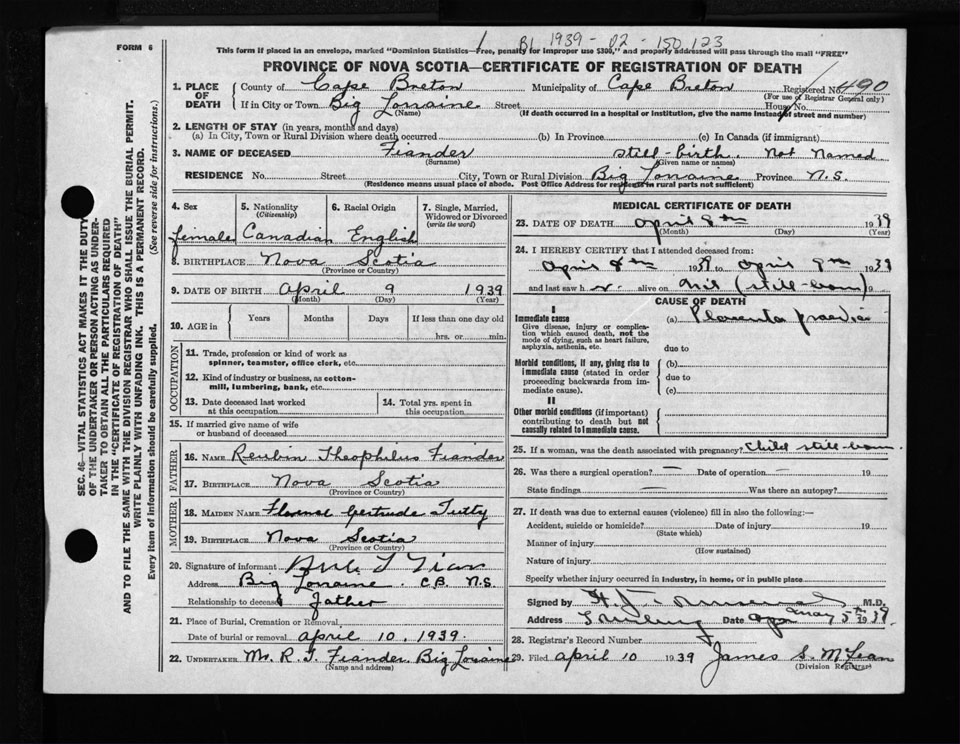 FORM 6
1 B1 1939 - 02 - 150123
This form if placed in an envelope, marked "Dominion Statistics—Free, penalty for improper use $300," and properly addressed will pass through the mail "FREE"
PROVINCE OF NOVA SCOTIA—CERTIFICATE OF REGISTRATION OF DEATH
1. PLACE OF DEATH County of Cape Breton Municipality of Cape Breton Registered No. 490
(For use of Registrar General only)
If in City or Town Big Lorraine Street House No.
(Name) (If death occurred in a hospital or institution, give the name instead of street and number)
2. LENGTH OF STAY (in years, months and days)
(a) In City, Town or Rural Division where death occurred (b) In Province (c) In Canada (if immigrant)
3. NAME OF DECEASED Fiander still-birth. Not Named
(Surname) (Given name or names)
RESIDENCE No. Street City, Town or Rural Division Big Lorraine Province N.S.
(Residence means usual place of abode. Post Office Address for residents in rural parts not sufficient)
4. Sex 5. Nationality (Citizenship) 6. Racial Origin 7. Single, Married, Widowed or Divorced (write the word)
female Canadian English
8. BIRTHPLACE Nova Scotia
(Province or Country)
9. DATE OF BIRTH April 9 1939
(Month) (Day) (Year)
10. AGE in Years Months Days If less than one day old
hrs. or min.
OCCUPATION
11. Trade, profession or kind of work as spinner, teamster, office clerk, etc.
12. Kind of industry or business, as cotton-mill, lumbering, bank, etc.
13. Date deceased last worked at this occupation 14. Total yrs. spent in this occupation
15. If married give name of wife or husband of deceased
FATHER
16. NAME Reubin Theophilus Fiander
17. BIRTHPLACE Nova Scotia
(Province or Country)
MOTHER
18. MAIDEN NAME Gertrude Tutty
19. BIRTHPLACE Nova Scotia
(Province or Country)
20. Signature of informant
Address Big Lorraine C.B. N.S.
Relationship to deceased father
21. Place of Burial, Cremation or Removal
Date of burial or removal April 10, 1939.
22. UNDERTAKER Mr. R. T. Fiander. Big Loraine
(Name and address)
MEDICAL CERTIFICATE OF DEATH
23. DATE OF DEATH April 8th 1939
(Month) (Day) (Year)
24. I HEREBY CERTIFY that I attended deceased from:
April 8th 1939 to April 8th 1939
and last saw h r. alive on nil (still-born) 19
CAUSE OF DEATH
I
Immediate cause (a) Placenta praevia
Give disease, injury or complication which caused death, not the mode of dying, such as heart failure, asphyxia, asthenia, etc.
due to
Morbid conditions, if any, giving rise to immediate cause (stated in order proceeding backwards from immediate cause).
(b)
due to
(c)
II
Other morbid conditions (if important) contributing to death but not causally related to immediate cause.
25. If a woman, was the death associated with pregnancy? Child still-born
26. Was there a surgical operation? — Date of operation — 19
State findings — Was there an autopsy?
27. If death was due to external causes (violence) fill in also the following:—
Accident, suicide or homicide? Date of injury 19
(State which)
Manner of injury
(How sustained)
Nature of injury
Specify whether injury occurred in industry, in home, or in public place
Signed by M.D.
Address Date May 5th 1939
28. Registrar's Record Number
29. Filed April 10 1939 James S. McLean
(Division Registrar)
SEC. 46—VITAL STATISTICS ACT MAKES IT THE DUTY OF THE UNDERTAKER OR PERSON ACTING AS UNDERTAKER TO OBTAIN ALL THE PARTICULARS REQUIRED IN THE "CERTIFICATE OF REGISTRATION OF DEATH" AND TO FILE THE SAME WITH THE DIVISION REGISTRAR WHO SHALL ISSUE THE BURIAL PERMIT.
WRITE PLAINLY WITH UNFADING INK. THIS IS A PERMANENT RECORD.
Every item of information should be carefully supplied. (See reverse side for instructions.)